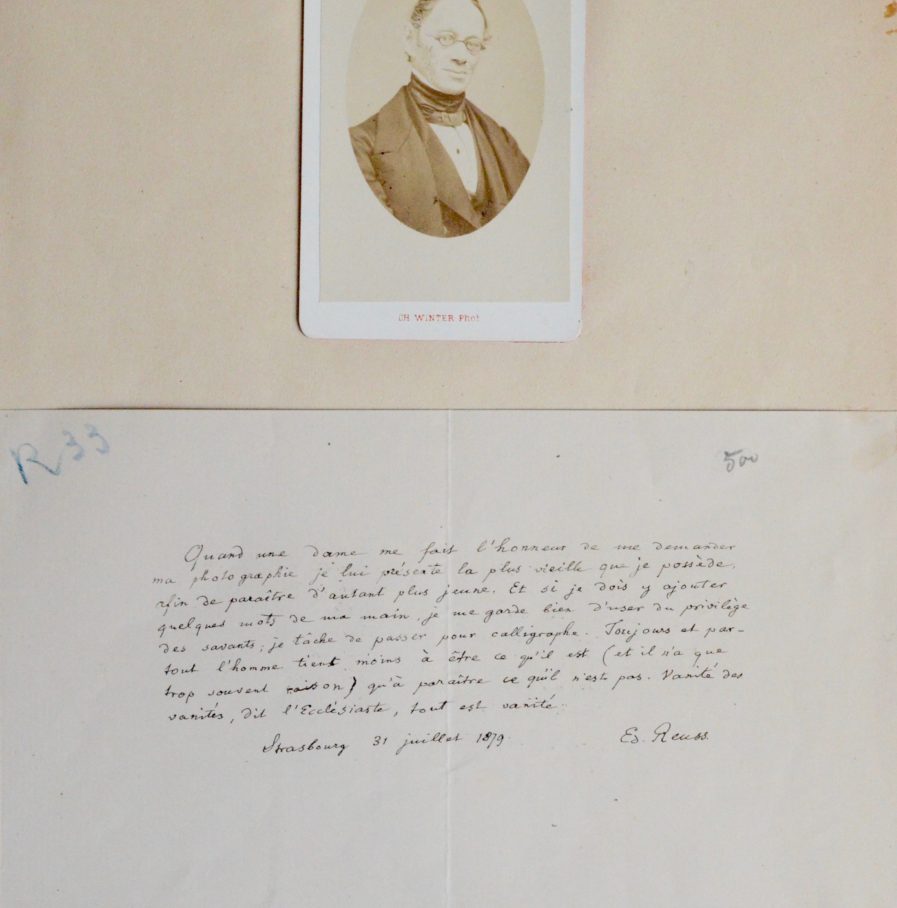 CH WINTER Phot
R 33
500
Quand une dame me fait l'honneur de me demander
ma photographie je lui présente la plus vieille que je possède,
afin de paraître d'autant plus jeune. Et si je dois y ajouter
quelques mots de ma main, je me garde bien d'user du privilège
des savants; je tâche de passer pour calligraphe. Toujours et par-
tout l'homme tient moins à être ce qu'il est (et il n'a que
trop souvent raison) qu'à paraître ce qu'il n'est pas. Vanité des
vanités, dit l'Ecclésiaste, tout est vanité.
Strasbourg 31 juillet 1879. Ed. Reuss.